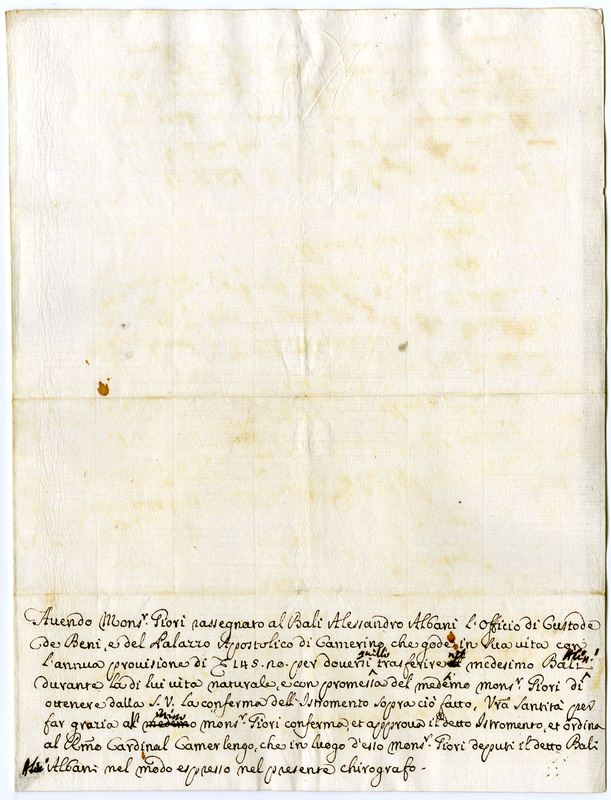 Avendo Mons.r Fiori rassegnato al Bali Alessandro Albani l'officio di Custode
de Beni, e del Palazzo Apostolico di Camerino che gode in sua vita con
l'annua provisione di 145.20. per doversi trasferire medesimo Bali
durante la di lui vita naturale, e con promessa del medemo mons.r Fiori di
ottenere dalla S. V. la conferma dell'Istromento sopra ciò fatto, Vra Santità per
far grazia al medemo mons.r Fiori conferma, et approva il detto Istromento, et ordina
al Emo Cardinal Camerlengo, che in luogo d'esso mons.r Fiori deputi il detto Bali
Albani nel modo espresso nel presente chirografo.